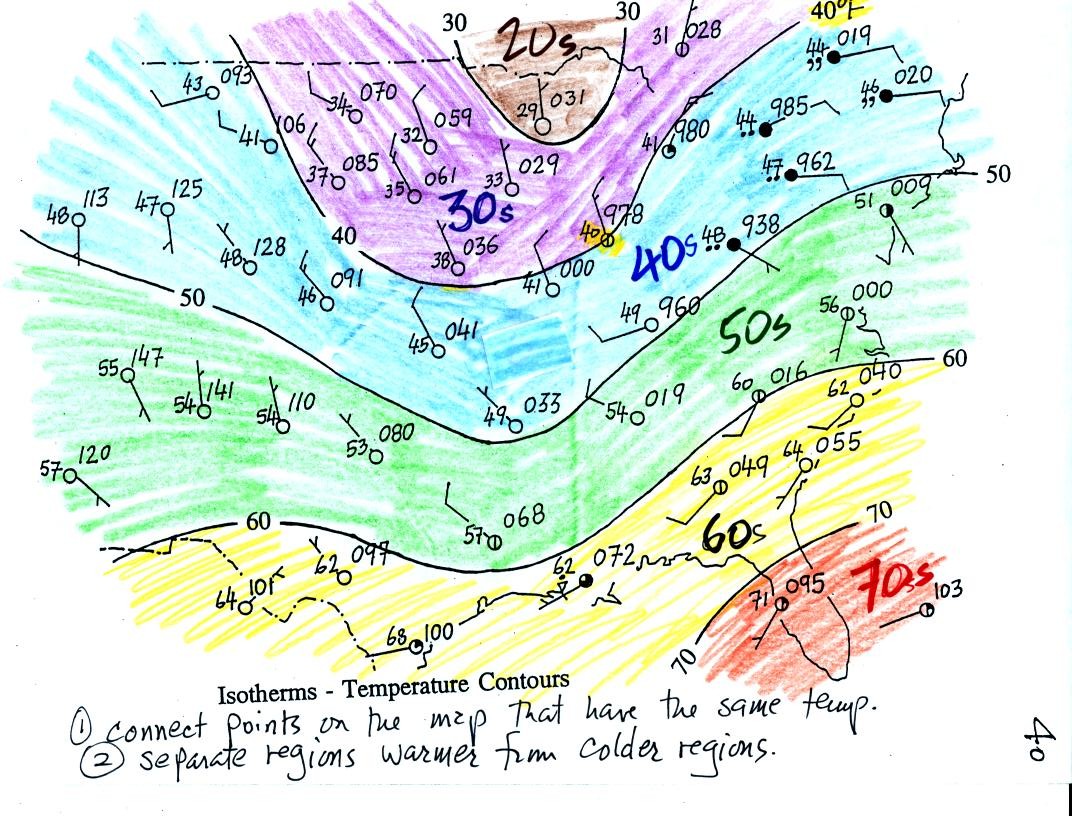 30 20s 30 31 028 40°F
44 019
43 093 46 020
34 070 32 059 29 031 44 985
41 106 41 980
37 085 35 061 33 029 47 962 50
48 113 47 125 30s 978 51 009
40 40 48 938
48 128 38 036 40s
46 091 41 000
50 49 960 56 000
45 041 50s
55 147 60
54 141 54 110 60 016 62 040
49 033 54 019
53 080 64 055
57 120 63 049
60 57 068 70
62 097 62 072 60s
64 101 71 095 70s 103
68 100 70
Isotherms - Temperature Contours
① connect points on the map that have the same temp.
② separate regions warmer from colder regions.
40